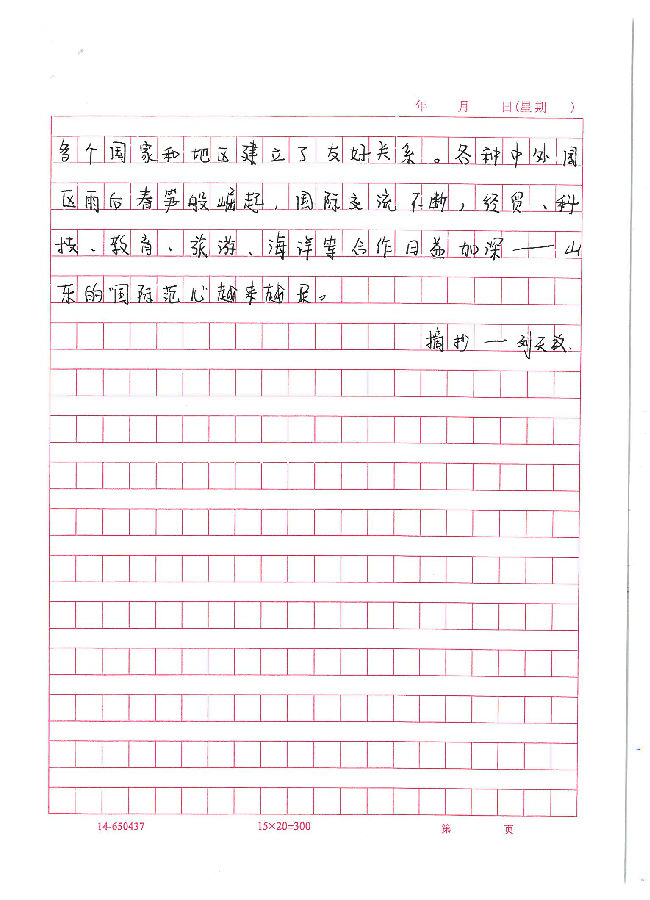 年 月 日(星期 )
多个国家和地区建立了友好关系。各种中外园
区雨后春笋般崛起，国际交流不断，经贸、科
技、教育、旅游、海洋等合作日益加深——山
东的“国际范儿”越来越足。
摘抄—刘天
14-650437 15×20=300 第 页